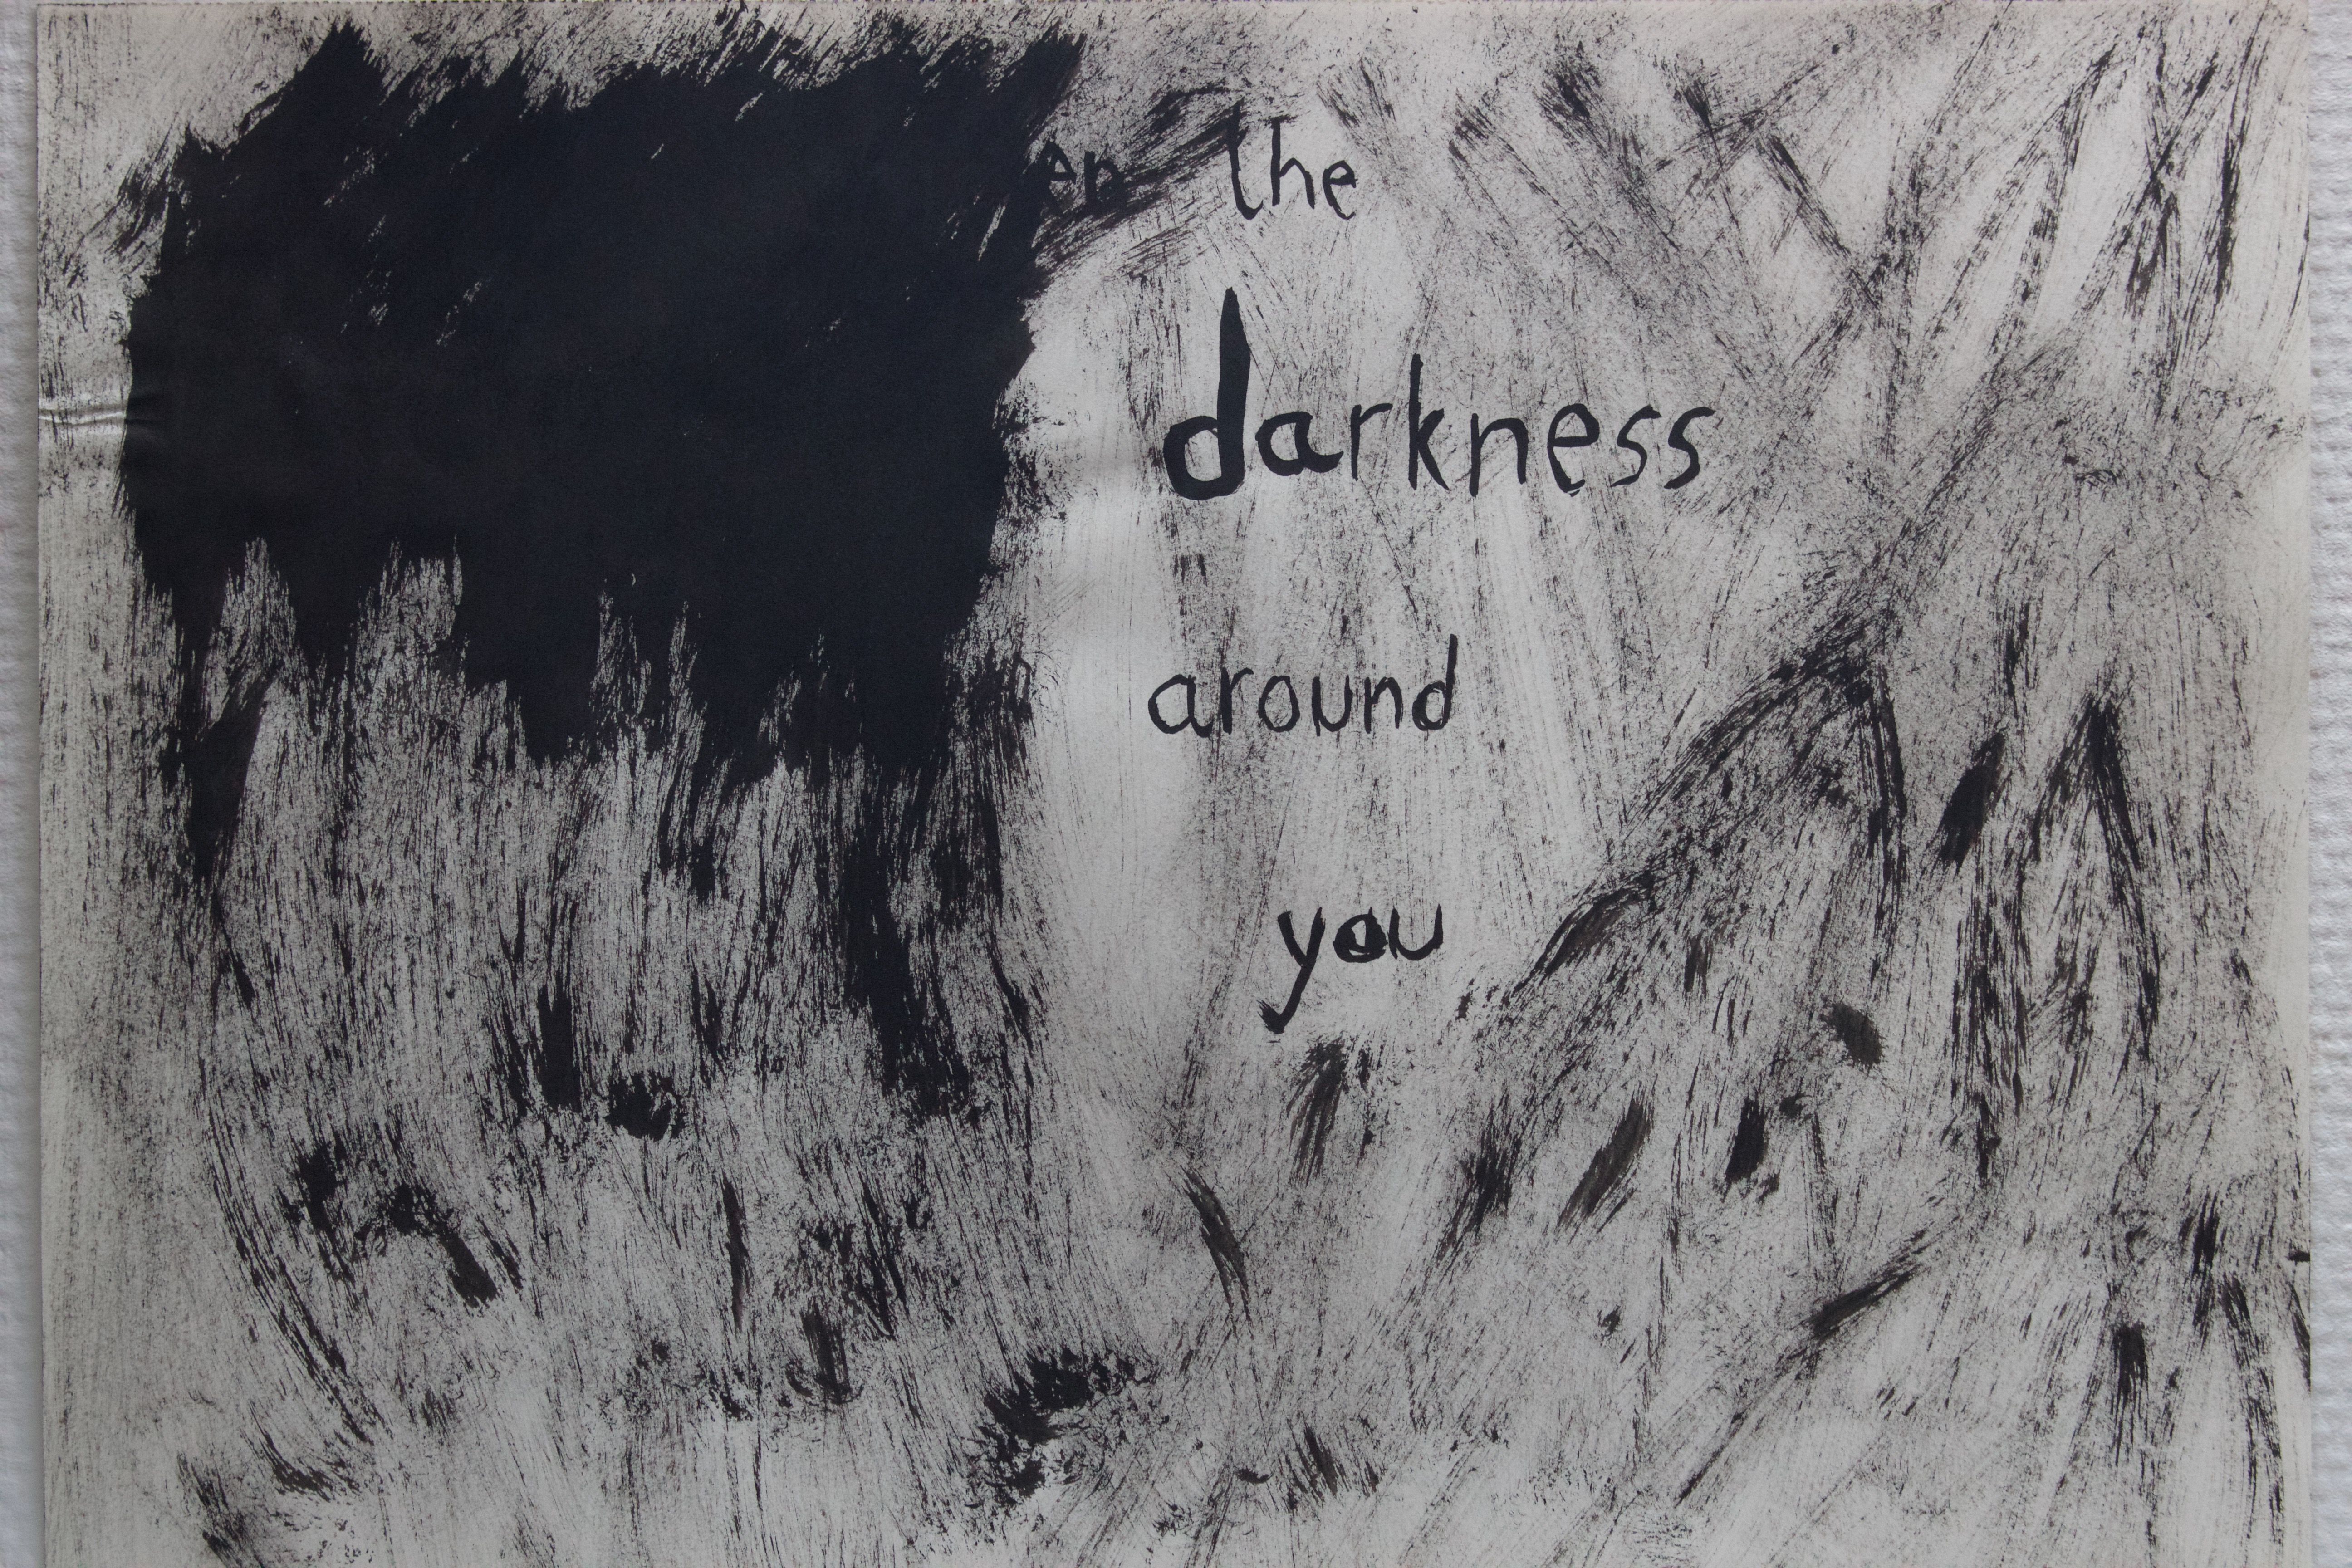 en the
darkness
around
you